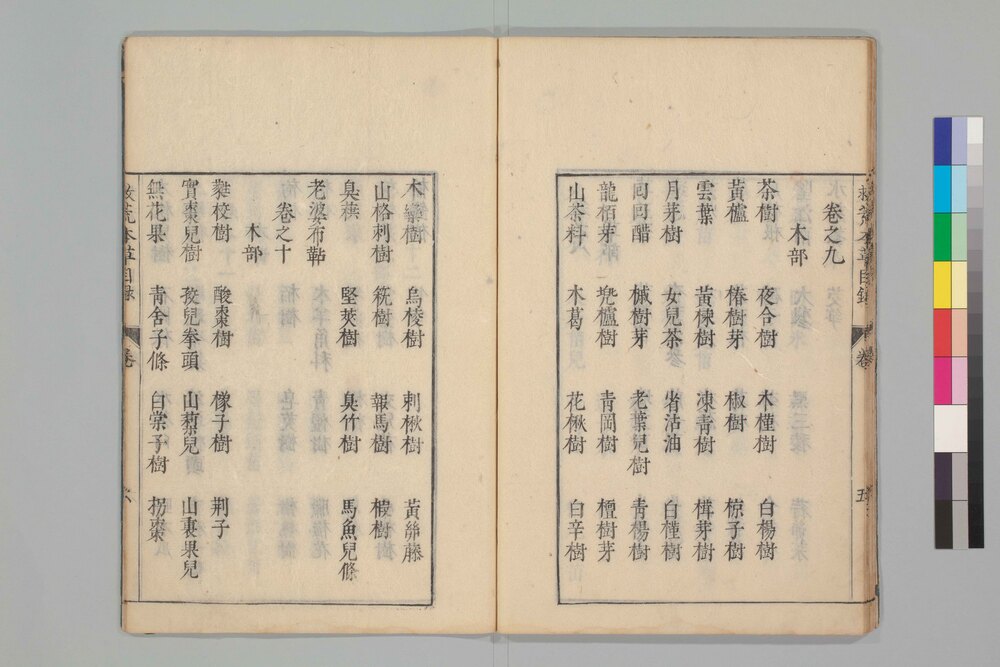 救荒本草目錄　卷　五
卷之九
木部
茶樹　夜合樹　木槿樹　白楊樹
黃櫨　椿樹芽　椒樹　椋子樹
雲葉　黃楝樹　凍青樹　樺芽樹
月芽樹　女兒茶　省沽油　白槿樹
回回醋　槭樹芽　老葉兒樹　青楊樹
龍栢芽　兜櫨樹　青岡樹　檀樹芽
山茶科　木葛　花楸樹　白辛樹
木欒樹　烏棱樹　刺楸樹　黃絲藤
山格刺樹　筅樹　報馬樹　椵樹
臭𦼫　堅莢樹　臭竹樹　馬魚兒條
老婆布鞊
卷之十
木部
蕤核樹　酸棗樹　橡子樹　荆子
實棗兒樹　孩兒拳頭　山䔧兒　山裏果兒
無花果　青舍子條　白棠子樹　拐棗
救荒本草目錄　卷　六